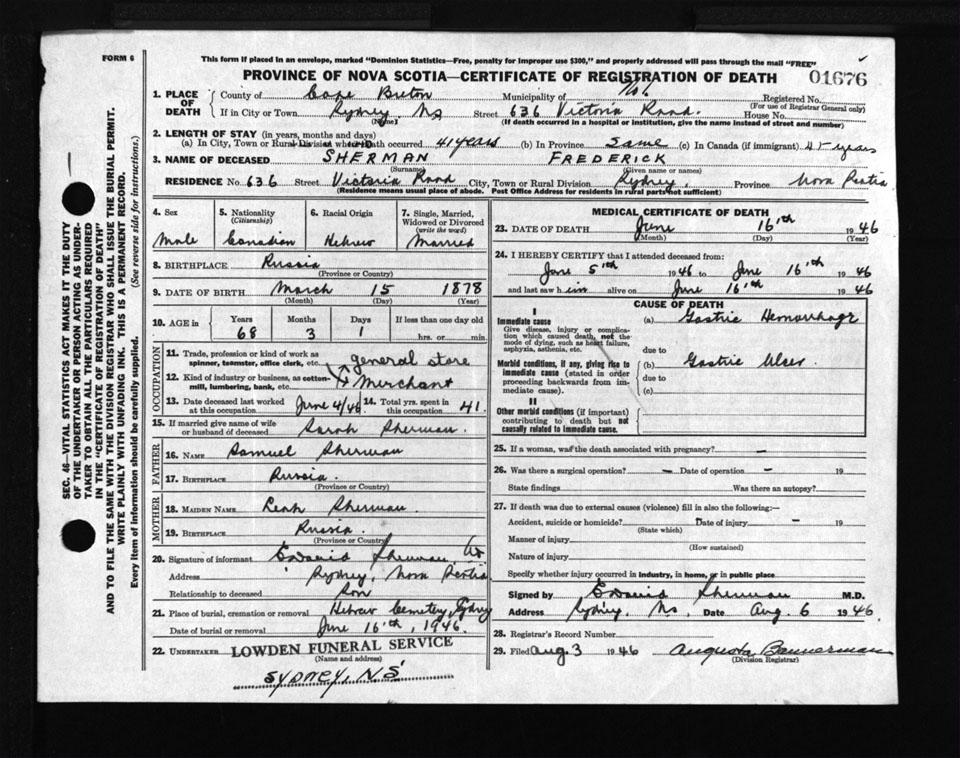 FORM 6
This form if placed in an envelope, marked "Dominion Statistics—Free, penalty for improper use $300," and properly addressed will pass through the mail "FREE"
PROVINCE OF NOVA SCOTIA—CERTIFICATE OF REGISTRATION OF DEATH
01676
1. PLACE OF DEATH
County of Cape Breton Municipality of Registered No.
(For use of Registrar General only)
If in City or Town Sydney NS Street 636 Victoria Road House No.
(Name) (If death occurred in a hospital or institution, give the name instead of street and number)
2. LENGTH OF STAY (in years, months and days)
(a) In City, Town or Rural Division where death occurred 41 years (b) In Province Same (c) In Canada (if immigrant) 45 years
3. NAME OF DECEASED SHERMAN FREDERICK
(Surname) (Given name or names)
RESIDENCE No. 636 Street Victoria Road City, Town or Rural Division Sydney Province Nova Scotia
(Residence means usual place of abode. Post Office Address for residents in rural parts not sufficient)
4. Sex
Male
5. Nationality
(Citizenship)
Canadian
6. Racial Origin
Hebrew
7. Single, Married, Widowed or Divorced
(write the word)
Married
8. BIRTHPLACE Russia
(Province or Country)
9. DATE OF BIRTH March 15 1878
(Month) (Day) (Year)
10. AGE in Years Months Days If less than one day old
68 3 1 hrs. or min.
OCCUPATION
11. Trade, profession or kind of work as spinner, teamster, office clerk, etc. general store
12. Kind of industry or business, as cotton-mill, lumbering, bank, etc. Merchant
13. Date deceased last worked at this occupation June 4/46 14. Total yrs. spent in this occupation 41.
15. If married give name of wife or husband of deceased Sarah Sherman.
FATHER
16. NAME Samuel Sherman
17. BIRTHPLACE Russia.
(Province or Country)
MOTHER
18. MAIDEN NAME Leah Sherman
19. BIRTHPLACE Russia.
(Province or Country)
20. Signature of informant E David Sherman
Address Sydney, Nova Scotia
Relationship to deceased Son
21. Place of burial, cremation or removal Hebrew Cemetery, Sydney
Date of burial or removal June 16th, 1946.
22. UNDERTAKER LOWDEN FUNERAL SERVICE
(Name and address)
SYDNEY, N.S
MEDICAL CERTIFICATE OF DEATH
23. DATE OF DEATH June 16th 1946
(Month) (Day) (Year)
24. I HEREBY CERTIFY that I attended deceased from:
June 5th 1946 to June 16th 1946
and last saw him alive on June 16th 1946
CAUSE OF DEATH
I
Immediate cause
Give disease, injury or complication which caused death, not the mode of dying, such as heart failure, asphyxia, asthenia, etc.
(a) Gastric Hemorrhage
due to
Morbid conditions, if any, giving rise to immediate cause (stated in order proceeding backwards from immediate cause).
(b) Gastric Ulcer
due to
(c)
II
Other morbid conditions (if important) contributing to death but not causally related to immediate cause.
25. If a woman, was the death associated with pregnancy? –
26. Was there a surgical operation? – Date of operation – 19
State findings Was there an autopsy?
27. If death was due to external causes (violence) fill in also the following:—
Accident, suicide or homicide? Date of injury – 19
(State which)
Manner of injury
(How sustained)
Nature of injury
Specify whether injury occurred in industry, in home, or in public place
Signed by E David Sherman M.D.
Address Sydney, NS Date Aug. 6 1946
28. Registrar's Record Number
29. Filed Aug 3 1946 Augusta Bannerman
(Division Registrar)
SEC. 46—VITAL STATISTICS ACT MAKES IT THE DUTY
OF THE UNDERTAKER OR PERSON ACTING AS UNDER-
TAKER TO OBTAIN ALL THE PARTICULARS REQUIRED
IN THE "CERTIFICATE OF REGISTRATION OF DEATH"
AND TO FILE THE SAME WITH THE DIVISION REGISTRAR WHO SHALL ISSUE THE BURIAL PERMIT.
WRITE PLAINLY WITH UNFADING INK. THIS IS A PERMANENT RECORD.
Every item of information should be carefully supplied. (See reverse side for instructions.)